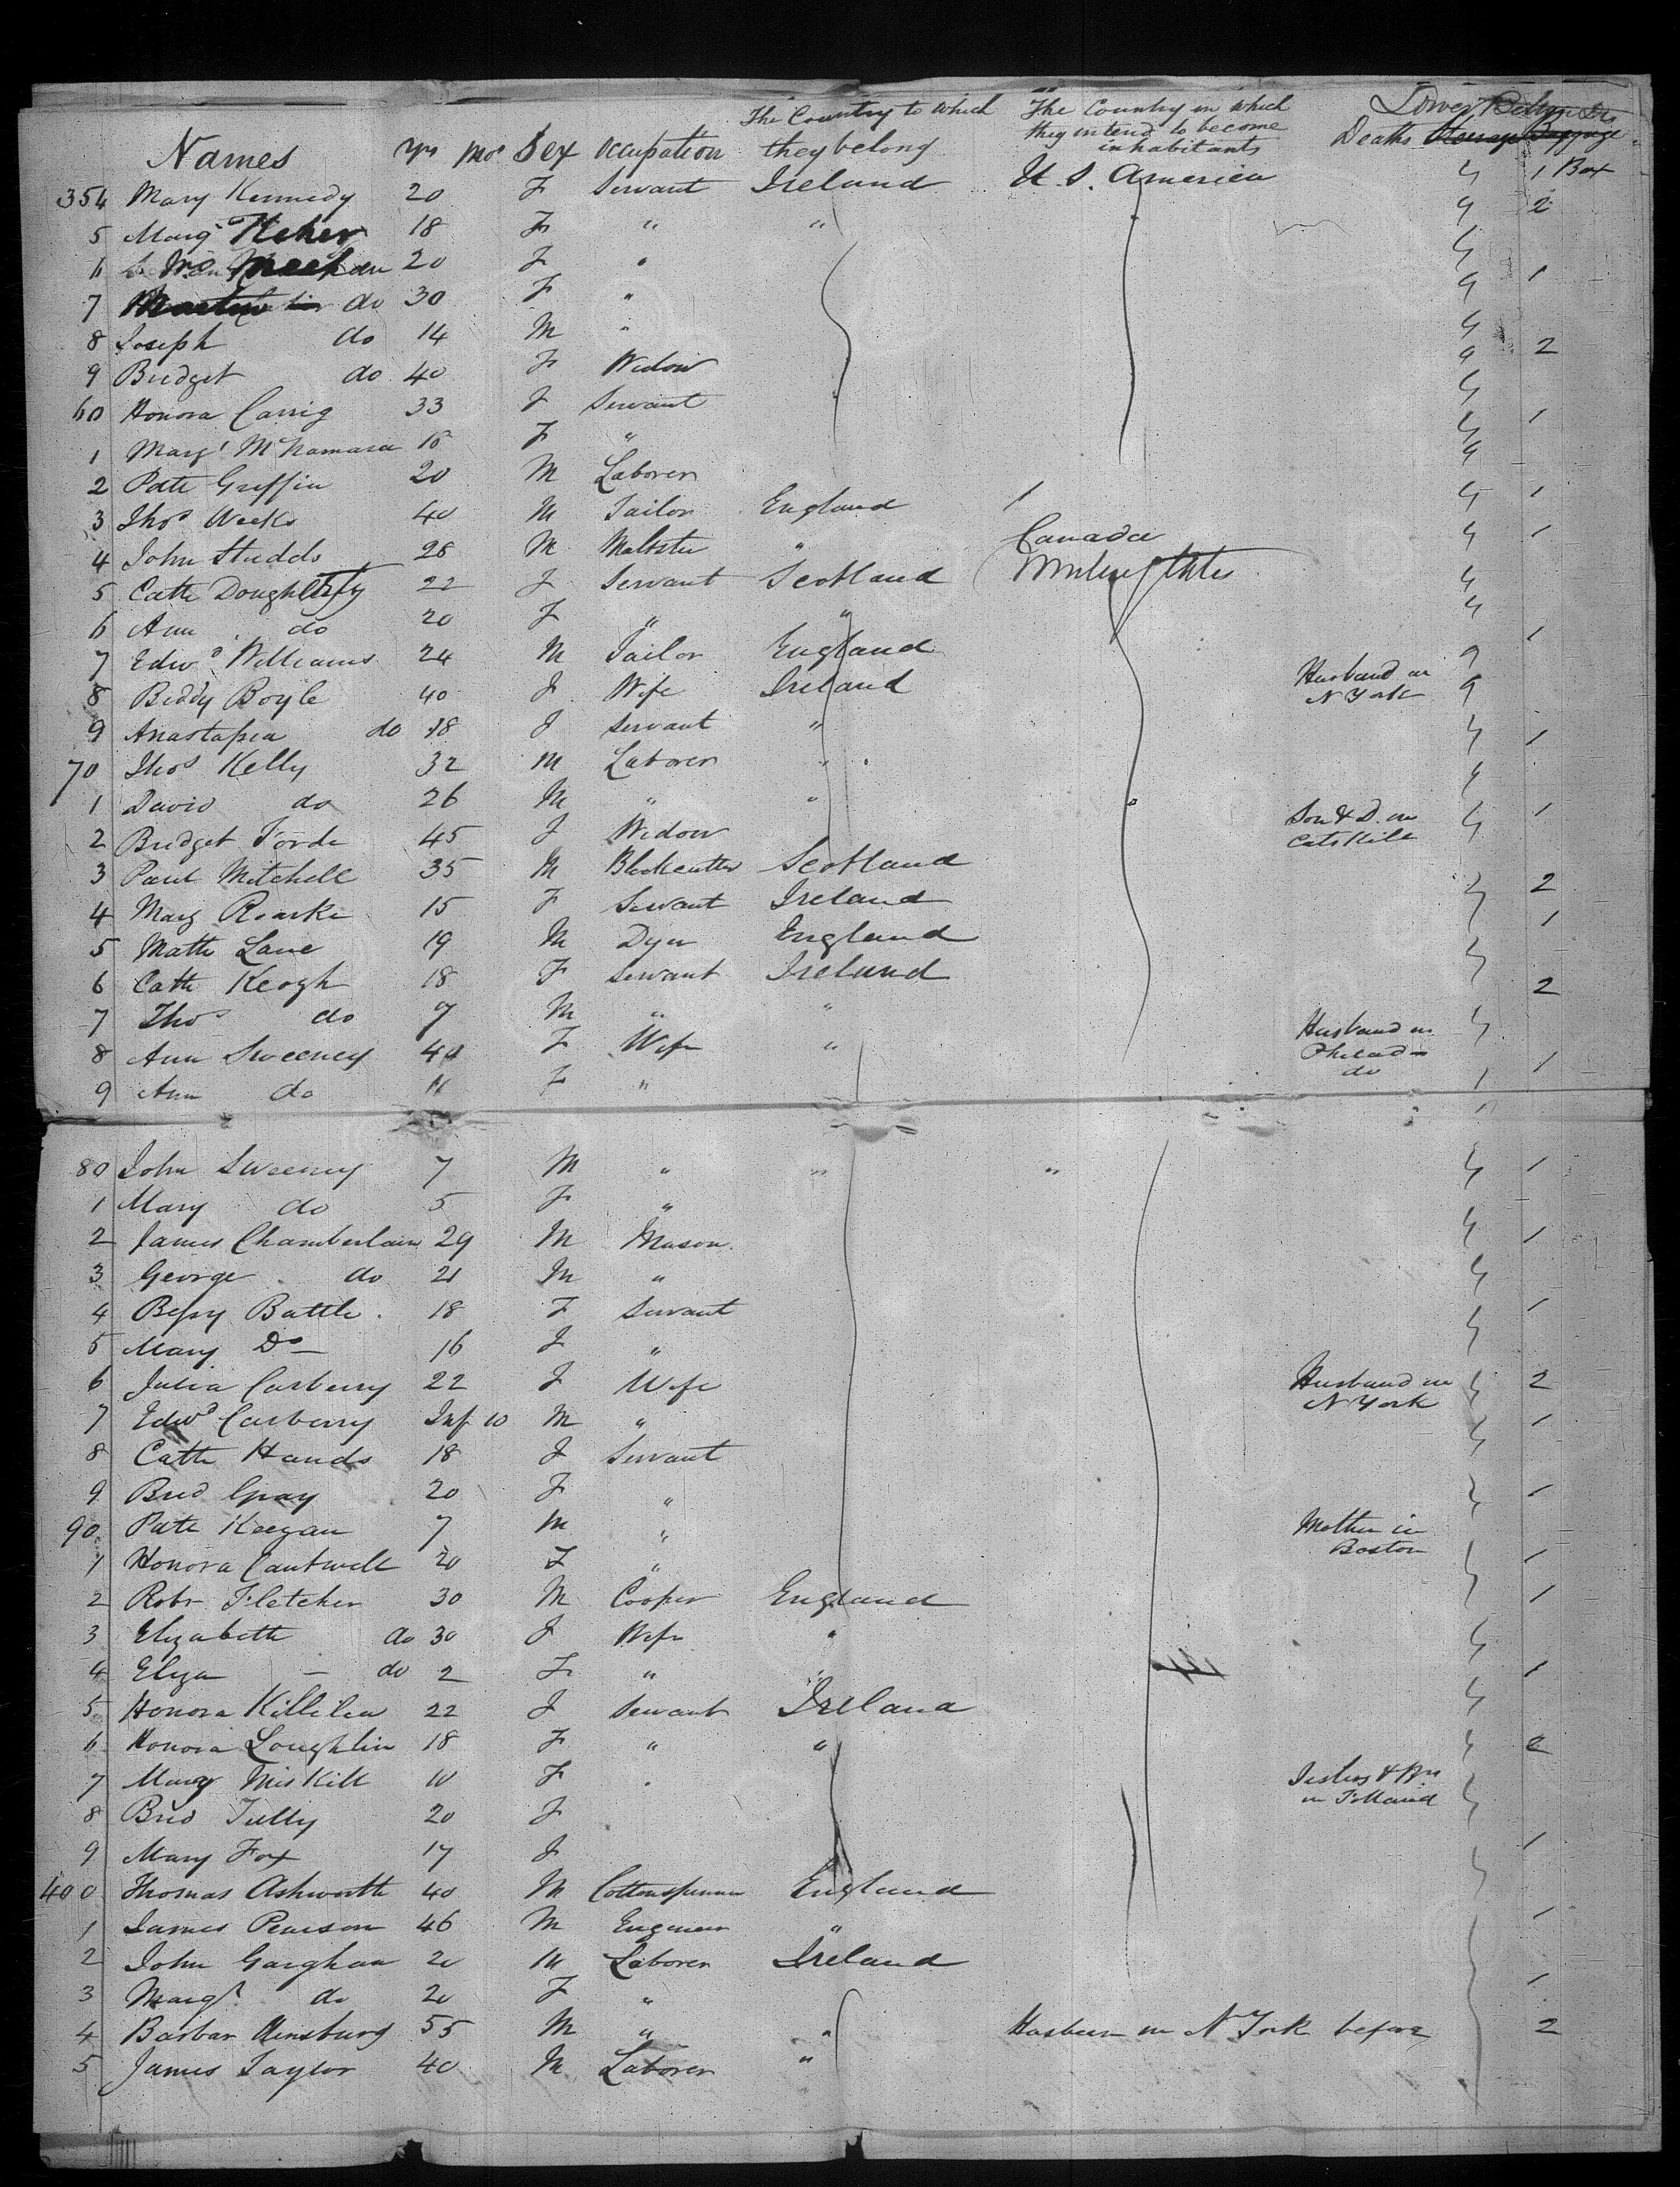 Names Yrs Mos Sex Occupation The Country to which they belong The Country in which they intend to become inhabitants Deaths Lower
354 Mary Kennedy 20 F Servant Ireland U. S. America 1 Box
5 Marg Maher 18 F " " 2
6 Meehan 20 F "
7 do 30 F " 1
8 Joseph do 14 M "
9 Bridget do 40 F Widow 2
60 Honora Carrig 33 F Servant
1 Margt McNamara 18 F " 1
2 Patk Griffin 20 M Laborer
3 Thos Weeks 40 M Tailor England 1
4 John Studds 28 M Maltster " Canada 1
5 Cath Dougherty 22 F Servant Scotland United States
6 Ann do 20 F " "
7 Edwd Williams 24 M Tailor England 1
8 Biddy Boyle 40 F Wife Ireland Husband in N York
9 Anastasia do 18 F Servant " 1
70 Thos Kelly 32 M Laborer "
1 David do 26 M " " 1
2 Bridget Forde 45 F Widow Son & D. in Catskill
3 Paul Mitchell 35 M Blockcutter Scotland 2
4 Mary Roarke 15 F Servant Ireland 1
5 Matth Lane 19 M Dyer England
6 Cath Keogh 18 F Servant Ireland 2
7 Thos do 9 M " "
8 Ann Sweeney 40 F Wife " Husband in Philad 1
9 Ann do 11 F " do
80 John Sweeney 7 M " " " 1
1 Mary do 5 F "
2 James Chamberlain 29 M Mason 1
3 George do 21 M "
4 Bessy Battle 18 F Servant 1
5 Mary Do 16 F "
6 Julia Carberry 22 F Wife Husband in N York 2
7 Edwd Carberry Inf 10 M " 1
8 Cath Hands 18 F Servant
9 Brid Gray 20 F " 1
90 Patk Keegan 7 M " Mother in Boston
1 Honora Cantwell 20 F " 1
2 Robt Fletcher 30 M Cooper England 1
3 Elizabeth do 30 F Wife "
4 Eliza do 2 F " " 1
5 Honora Killilea 22 F Servant Ireland
6 Honora Loughlin 18 F " " 2
7 Mary Miskill 10 F " Sisters & Brs in
8 Brid Tully 20 F
9 Mary Fox 17 F 1
400 Thomas Ashworth 40 M Cottonspinner England
1 James Pearson 46 M Engineer " 1
2 John Garghan 20 M Laborer Ireland
3 Margt do 20 F " 1
4 55 M " " Has been in N York before 2
5 James Taylor 40 M Laborer "